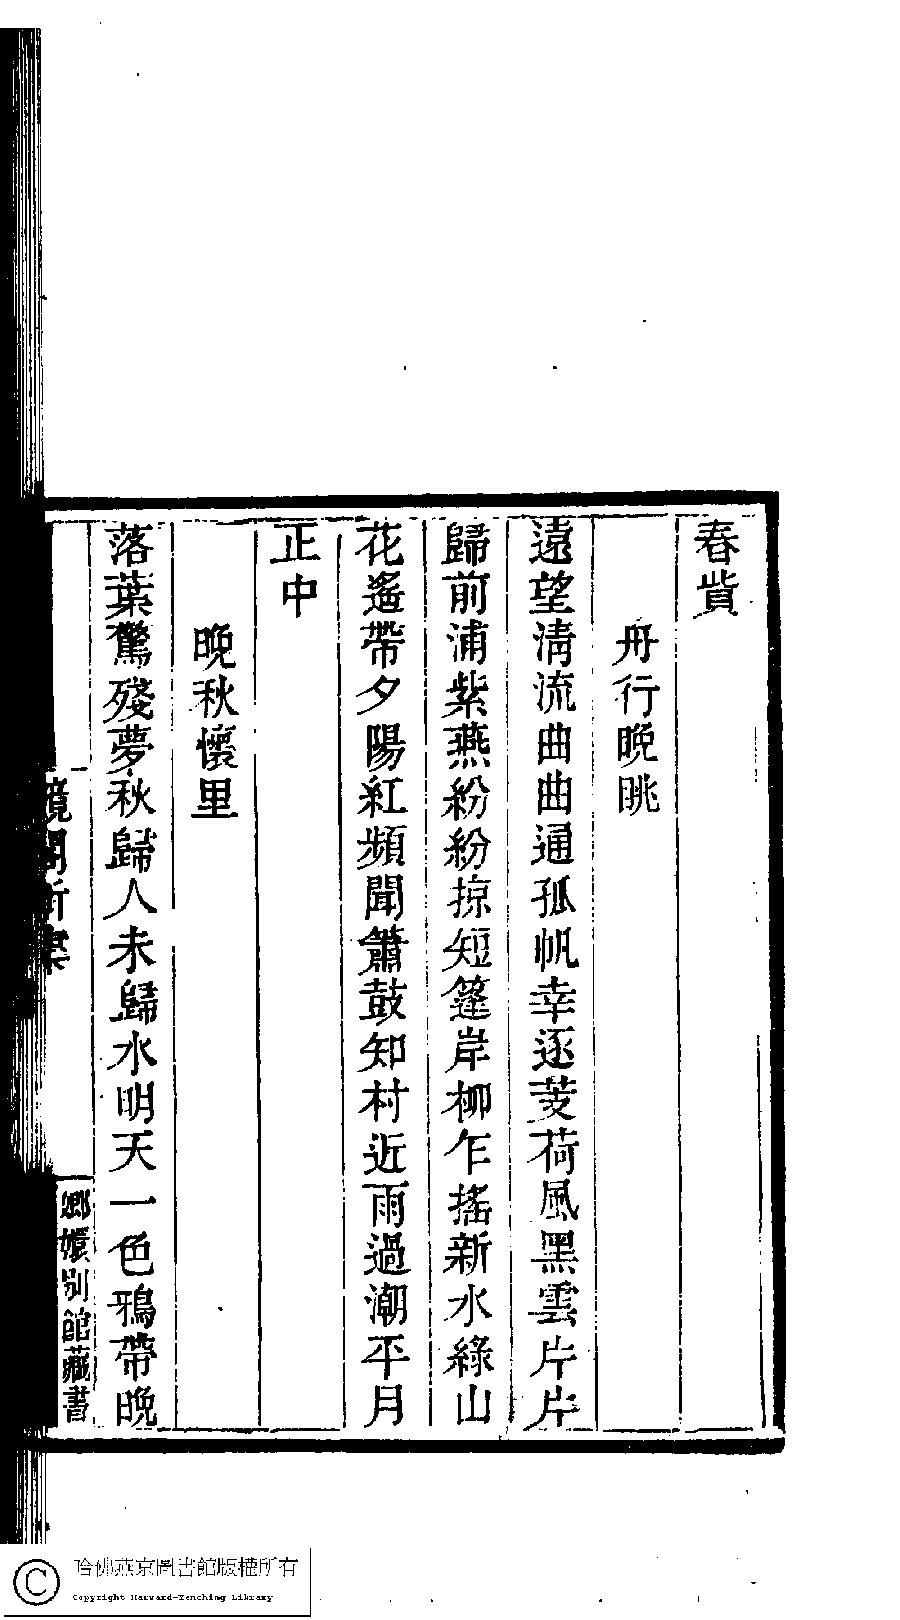 春貲
舟行晚眺
遠望淸流曲曲通孤帆幸逐菱荷風黑雲片片
歸前浦紫燕紛紛掠短篷岸柳乍搖新水綠山
花遙帶夕陽紅頻聞簫鼓知村近雨過潮平月
正中
晚秋懷里
落葉驚殘夢秋歸人未歸水明天一色鴉帶晚
嫏嬛別館藏書
哈佛燕京圖書館版權所有
Copyright Harvard-Yenching Library